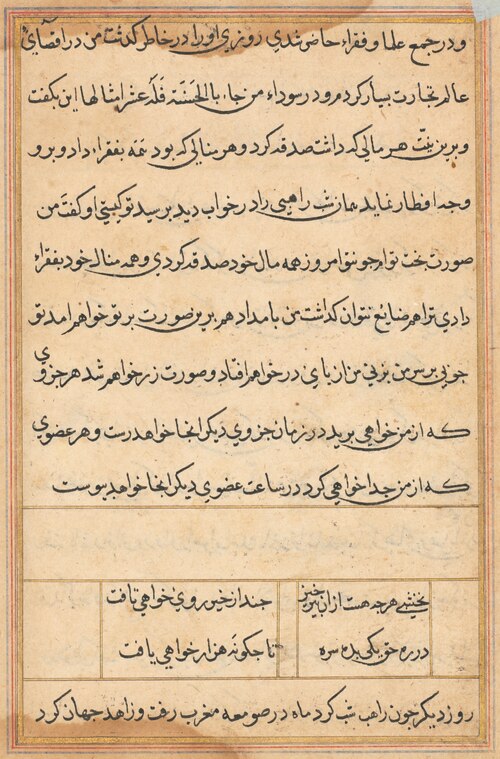 ودر جمع علما و فقراء حاضر شدي روزي اورا در خاطر كذشت من در اقصاي
عالم تجارت بسيار كردم و در سوداء من جاء بالحسنة فله عشر امثالها اين بكفت
و برين نيت هر مالي كه داشت صدقه كرد و هر منالي كه بود همه بفقراء داد و برو
وجه افطار نماند همان شب راهبي را در خواب ديد برسيد تو كيستي او كفت من
صورت بخت توام جو نتو امروز همه مال خود صدقه كردي و همه منال خود بفقراء
دادي ترا هم ضايع نتوان كذاشت من بامداد هم برين صورت بر تو خواهم امد تو
جوبي بر سر من بزني من از باي در خواهم افتاد و صورت زر خواهم شد هر جزوي
كه از من خواهي بريد در زمان جزوي ديكر انجا خواهد رست و هر عضوي
كه از من جدا خواهي كرد در ساعت عضوي ديكر انجا خواهد بيوست
نخشبي هرجه هست از ابر خيز جند از خير روي خواهي تافت
در ره حق يكي بده سره تا جكونه هزار خواهي يافت
روز ديكر جون راهب شب كرد ماه در صومعه مغرب رفت و زاهد جهان كرد